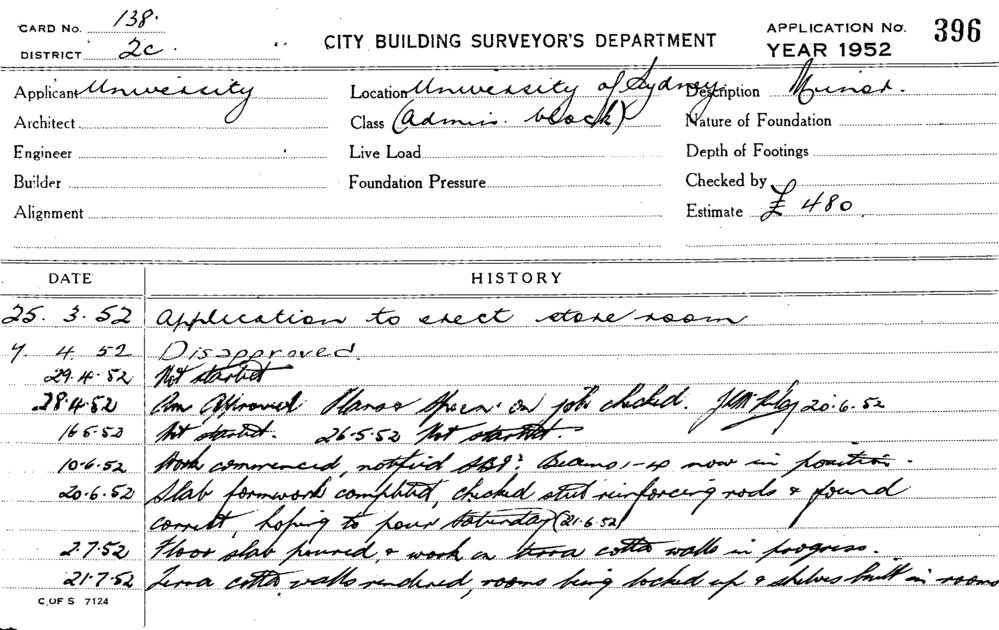 CARD No. 138.
DISTRICT 2c.
CITY BUILDING SURVEYOR'S DEPARTMENT
APPLICATION No. 396
YEAR 1952
Applicant University
Location University of Sydney
Description Minor.
Architect
Class (admin. block)
Nature of Foundation
Engineer
Live Load
Depth of Footings
Builder
Foundation Pressure
Checked by
Alignment
Estimate £ 480
DATE HISTORY
25. 3. 52 Application to erect store room
7. 4. 52 Disapproved.
29.4.52 Not started
28.4.52 Approved Plans & Specn. on job checked. 20.6.52
16.5.52 Not started. 26.5.52 Not started.
10.6.52 Work commenced, notified Beams 1-4 now in position.
20.6.52 Slab formwork completed, checked steel reinforcing rods & found
correct, hoping to pour Saturday (21.6.52)
2.7.52 Floor slab poured, & work on terra cotta walls in progress.
21.7.52 Terra cotta walls rendered, rooms being locked up & shelves built in rooms
C. OF S 7124